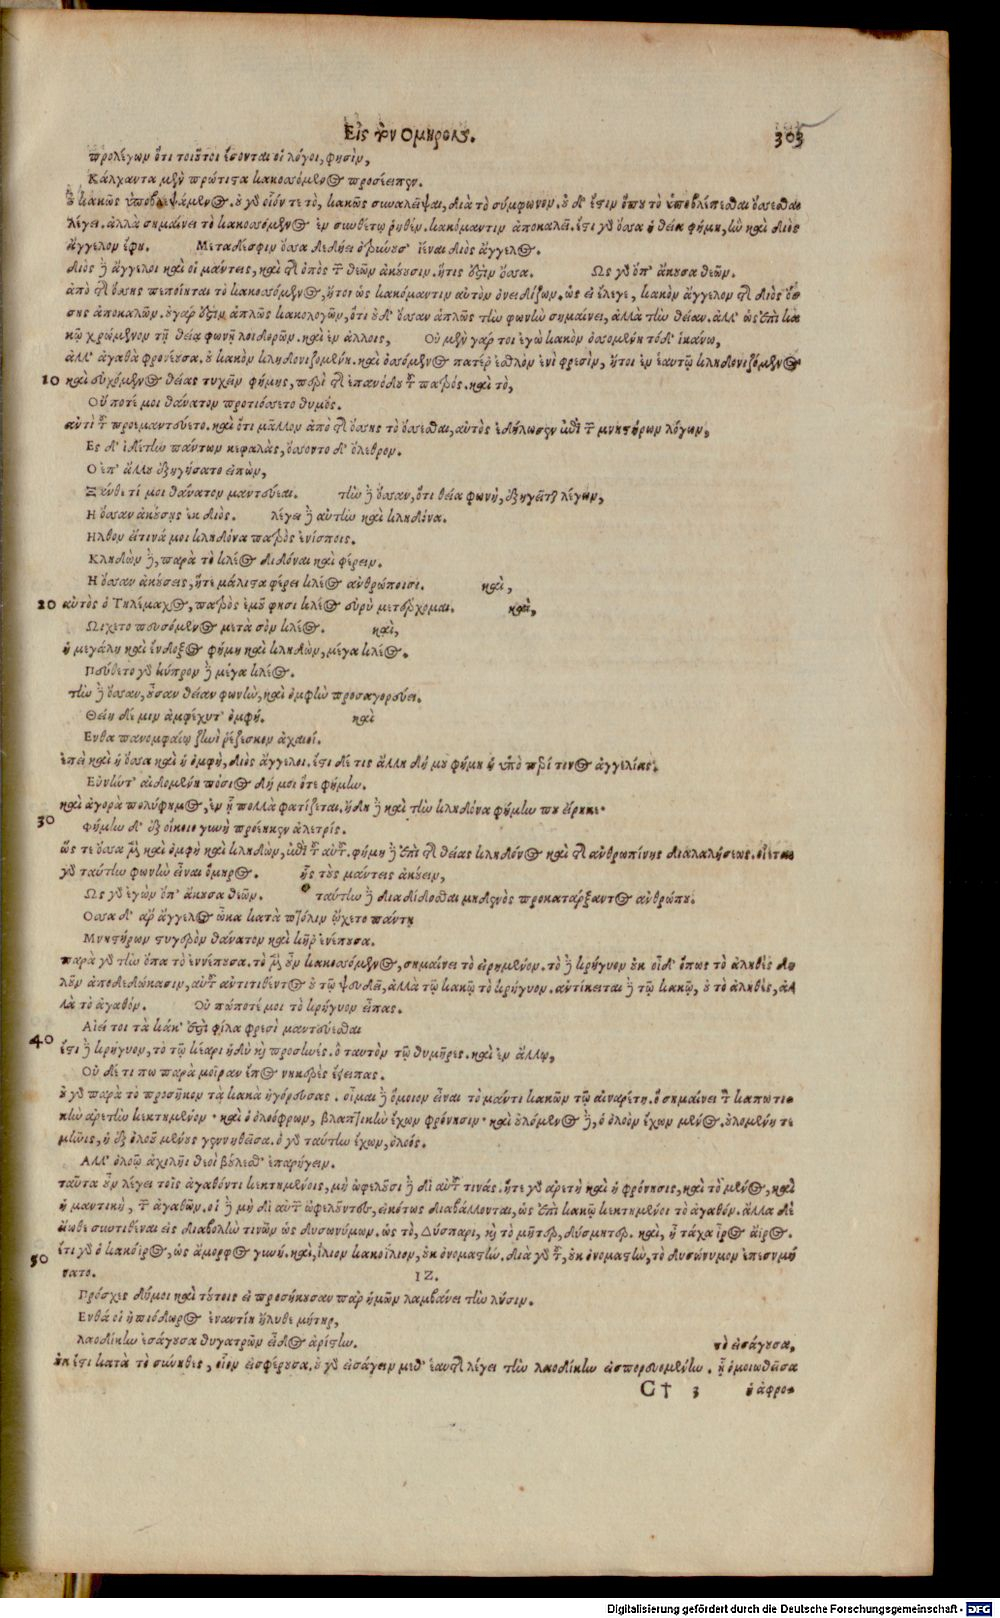 Εἰς τὸν Ομηρον. 303
προλέγων ὅτι τοιοῦτοι ἔσονται οἱ λόγοι, φησὶν,
Κάλχαντα μὲν πρώτιστα κακοσσόμενος προσέειπεν.
οὐ κακῶς ὑποβλεψάμενος. οὐ γὰρ οἷόν τε τὸ, κακῶς συναλεῖψαι, διὰ τὸ σύμφωνον. οὐδ' ἔστιν ὅπου τὸ ὑποβλέπεσθαι ὄσσεσθαι
λέγει. ἀλλὰ σημαίνει τὸ κακοσσόμενος ἐν συνθέτῳ ῥηθὲν. κακόμαντιν ἀποκαλεῖ. ἔστι γὰρ ὄσσα ἡ θεία φήμη, ἣν καὶ διὸς
ἄγγελον ἔφη. Μεταδέσφιν ὄσσα δεδήει ὀτρύνουσ' ἰέναι διὸς ἄγγελος.
διὸς δὲ ἄγγελοι καὶ οἱ μάντεις, καὶ τῆς ὀπὸς τῶν θεῶν ἀκούουσιν. ἥτις ἐστὶν ὄσσα. Ως γὰρ ὄπ' ἄκουσα θεῶν.
ἀπὸ τῆς ὄσσης πεποίηται τὸ κακοσσόμενος, ἤτοι ὡς κακόμαντιν αὐτὸν ὀνειδίζων. ὡς εἰ ἔλεγε, κακὸν ἄγγελον τῆς διὸς ὄσ
σης ἀποκαλῶν. οὐ γάρ ἐστιν ἁπλῶς κακολογῶν, ὅτι οὐδ' ὄσσαν ἁπλῶς τὴν φωνὴν σημαίνει, ἀλλὰ τὴν θείαν. ἀλλ' ὡς ἐπὶ κα
κῷ χρώμενον τῇ θείᾳ φωνῇ λοιδορῶν. καὶ ἐν ἄλλοις, Οὐ μὲν γάρ τοι ἐγὼ κακὸν ὀσσομένη τόδ' ἱκάνω,
ἀλλ' ἀγαθὰ φρονέουσα. οὐ κακὸν κληδονιζομένη. καὶ ὀσσόμενος πατέρ' ἐσθλὸν ἐνὶ φρεσὶν, ἤτοι ἐν ἑαυτῷ κληδονιζόμενος
10 καὶ εὐχόμενος θείας τυχεῖν φήμης, περὶ τῆς ἐπανόδου τοῦ πατρός. καὶ τὸ,
Οὔ ποτέ μοι θάνατον προτιόσσετο θυμός.
ἀντὶ τοῦ προεμαντεύετο. καὶ ὅτι μᾶλλον ἀπὸ τῆς ὄσσης τὸ ὄσσεσθαι, αὐτὸς ἐδήλωσεν ἐπὶ τῶν μνηστήρων λόγων,
Ες δ' ἰδέτην πάντων κεφαλὰς, ὄσσοντο δ' ὄλεθρον.
Ο ἐπ' ἄλλου ἐξηγήσατο εἰπὼν,
Ξάνθε τί μοι θάνατον μαντεύεαι. τὴν δὲ ὄσσαν, ὅτι θεία φωνὴ, ἐξηγεῖται λέγων,
Η ὄσσαν ἀκούσῃς ἐκ διός. λέγει δὲ αὐτὴν καὶ κληδόνα.
Ηλθον εἴτινά μοι κληδόνα πατρὸς ἐνίσποις.
Κληδὼν δὲ, παρὰ τὸ κλέος διδόναι καὶ φέρειν.
Η ὄσσαν ἀκούσεις, ἥτε μάλιστα φέρει κλέος ἀνθρώποισι. καὶ,
20 αὐτὸς ὁ Τηλέμαχος, πατρὸς ἐμοῦ φησι κλέος εὐρὺ μετέρχομαι. καὶ,
Ωιχετο πευσόμενος μετὰ σὸν κλέος. καὶ,
ἡ μεγάλη καὶ ἔνδοξος φήμη καὶ κληδὼν, μέγα κλέος.
Πεύθετο γὰρ κύπρον δὲ μέγα κλέος.
τὴν δὲ ὄσσαν, οὖσαν θείαν φωνὴν, καὶ ὀμφὴν προσαγορεύει.
Θείη δέ μιν ἀμφέχυτ' ὀμφή. καὶ
Ενθα πανομφαίῳ ζηνὶ ῥέζεσκον ἀχαιοί.
ἐπεὶ καὶ ἡ ὄσσα καὶ ἡ ὀμφὴ, διὸς ἄγγελοι. ἔστι δέ τις ἄλλη δήμου φήμη ἡ ὑπὸ περί τινος ἀγγελίας.
Εὐνήντ' αἰδομένη πόσιος δήμοιό τε φήμην.
καὶ ἀγορὰ πολύφημος, ἐν ᾗ πολλὰ φατίζεται. ἤδη δὲ καὶ τὴν κληδόνα φήμην που εἴρηκε·
30 Φήμην δ' ἐξ οἴκοιο γυνὴ προέηκεν ἀλετρίς.
ὥς τε ὄσσα μὲν καὶ ὀμφὴ καὶ κληδὼν, ἐπὶ τοῦ αὐτοῦ. φήμη δὲ ἐπὶ τῆς θείας κληδόνος καὶ τῆς ἀνθρωπίνης διαλαλήσεως. οἴεται
γὰρ ταύτην φωνὴν εἶναι ὅμηρος. ἧς τοὺς μάντεις ἀκούειν,
Ως γὰρ ἐγὼν ὄπ' ἄκουσα θεῶν. ταύτην δὲ διαδίδοσθαι μηδενὸς προκατάρξαντος ἀνθρώπου.
Οσσα δ' ἄρ ἄγγελος ὦκα κατὰ πτόλιν ᾤχετο πάντῃ
Μνηστήρων στυγερὸν θάνατον καὶ κῆρ' ἐνέπουσα.
παρὰ γὰρ τὴν ὄπα τὸ ἐννέπουσα. τὸ μὲν οὖν κακοσσόμενος, σημαίνει τὸ εἰρημένον. τὸ δὲ κρήγυον οὐκ οἶδ' ὅπως τὸ ἀληθὲς δη
λοῦν ἀποδεδώκασιν, αὐτοῦ ἀντιτιθέντος οὐ τῷ ψευδεῖ, ἀλλὰ τῷ κακῷ τὸ κρήγυον. ἀντίκειται δὲ τῷ κακῷ, οὐ τὸ ἀληθὲς, ἀλ
λὰ τὸ ἀγαθόν. Οὐ πώποτέ μοι τὸ κρήγυον εἶπας.
Αἰεί τοι τὰ κάκ' ἐστὶ φίλα φρεσὶ μαντεύεσθαι
40 ἔστι δὲ κρήγυον, τὸ τῷ κέαρι ἡδὺ καὶ προσηνές. ὃ ταυτὸν τῷ θυμῆρες. καὶ ἐν ἄλλῳ,
Οὐ δέ τι πω παρὰ μοῖραν ἔπος νηκερδὲς ἔειπας.
οὐ γὰρ παρὰ τὸ προσῆκον τὰ κακὰ ἠγόρευσας. οἶμαι δὲ ὅμοιον εἶναι τὸ μάντι κακῶν τῷ αἰναρέτῃ. ὃ σημαίνει τὸν κακωτι
κὴν ἀρετὴν κεκτημένον· καὶ ὁ ὀλοόφρων, βλαπτικὴν ἔχων φρόνησιν· καὶ οὐλόμενος δὲ, ὁ ὀλοὸν ἔχων μένος. οὐλομένη τε
μῆνις, ἡ ἐξ ὀλοοῦ μένους γεννηθεῖσα. ὁ γὰρ ταύτην ἔχων, ὀλοός.
Αλλ' ὀλοῷ ἀχιλῆι θεοὶ βούλεσθ' ἐπαρήγειν.
ταῦτα οὖν λέγει τοῖς ἀγαθόν τι κεκτημένοις, μὴ ὠφελοῦσι δὲ δι' αὐτοῦ τινάς. ἥτε γὰρ ἀρετὴ καὶ ἡ φρόνησις, καὶ τὸ μένος, καὶ
ἡ μαντικὴ, τῶν ἀγαθῶν. οἱ δὲ μὴ δι' αὐτῶν ὠφελοῦντες, εἰκότως διαβάλλονται, ὡς ἐπὶ κακῷ κεκτημένοι τὸ ἀγαθόν. ἄλλα δὲ
εἴωθε συντιθέναι εἰς διαβολὴν τινῶν ὡς δυσωνύμων. ὡς τὸ, Δύσπαρι, καὶ τὸ μῆτερ, δύσμητερ. καὶ, ἦ τάχα ἶρος ἄιρος.
ἔτι γὰρ ὁ κακόιρος, ὡς ἄμορφος γυνή. καὶ, ἴλιον κακοΐλιον, οὐκ ὀνομαστήν. διὰ γὰρ τοῦ, οὐκ ὀνομαστὴν, τὸ δυσώνυμον ἐπεσημή
50 νατο. ΙΖ.
Πρόσχες δή μοι καὶ τούτοις εἰ προσήκουσαν παρ' ἡμῶν λαμβάνει τὴν λύσιν.
Ενθά οἱ ἠπιόδωρος ἐναντίη ἤλυθε μήτηρ,
λαοδίκην ἐσάγουσα θυγατρῶν εἶδος ἀρίστην. τὸ ἐσάγουσα,
οὐκ ἔστι κατὰ τὸ σύνηθες, οἷον εἰσφέρουσα. οὐ γὰρ εἰσάγειν μεθ' ἑαυτῆς λέγει τὴν λαοδίκην εἰσπορευομένην. ᾗ ὁμοιωθεῖσα
G† 3 ἡ ἀφρο-
Digitalisierung gefördert durch die Deutsche Forschungsgemeinschaft - DFG